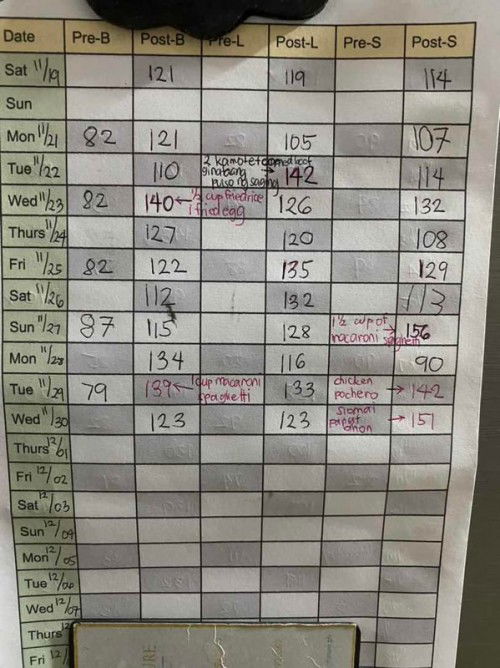 Date Pre-B Post-B Pre-L Post-L Pre-S Post-S
Sat 11/19 121 119 114
Sun
Mon 11/21 82 121 105 107
Tue 11/22 110 2 kamote ginataang puso ng saging → 142 114
Wed 11/23 82 140 ← 1/2 cup friedrice 1 fried egg 126 132
Thurs 11/24 127 120 108
Fri 11/25 82 122 135 129
Sat 11/26 112 132 113
Sun 11/27 87 115 128 1 1/2 cup of macaroni spaghetti → 156
Mon 11/28 134 116 90
Tue 11/29 79 139 ← 1 cup macaroni spaghetti 133 chicken pochero → 142
Wed 11/30 123 123 siomai pansit → 151
Thurs 12/01
Fri 12/02
Sat 12/03
Sun 12/04
Mon 12/05
Tue 12/06
Wed 12/07
Thurs 12/
Fri 12/